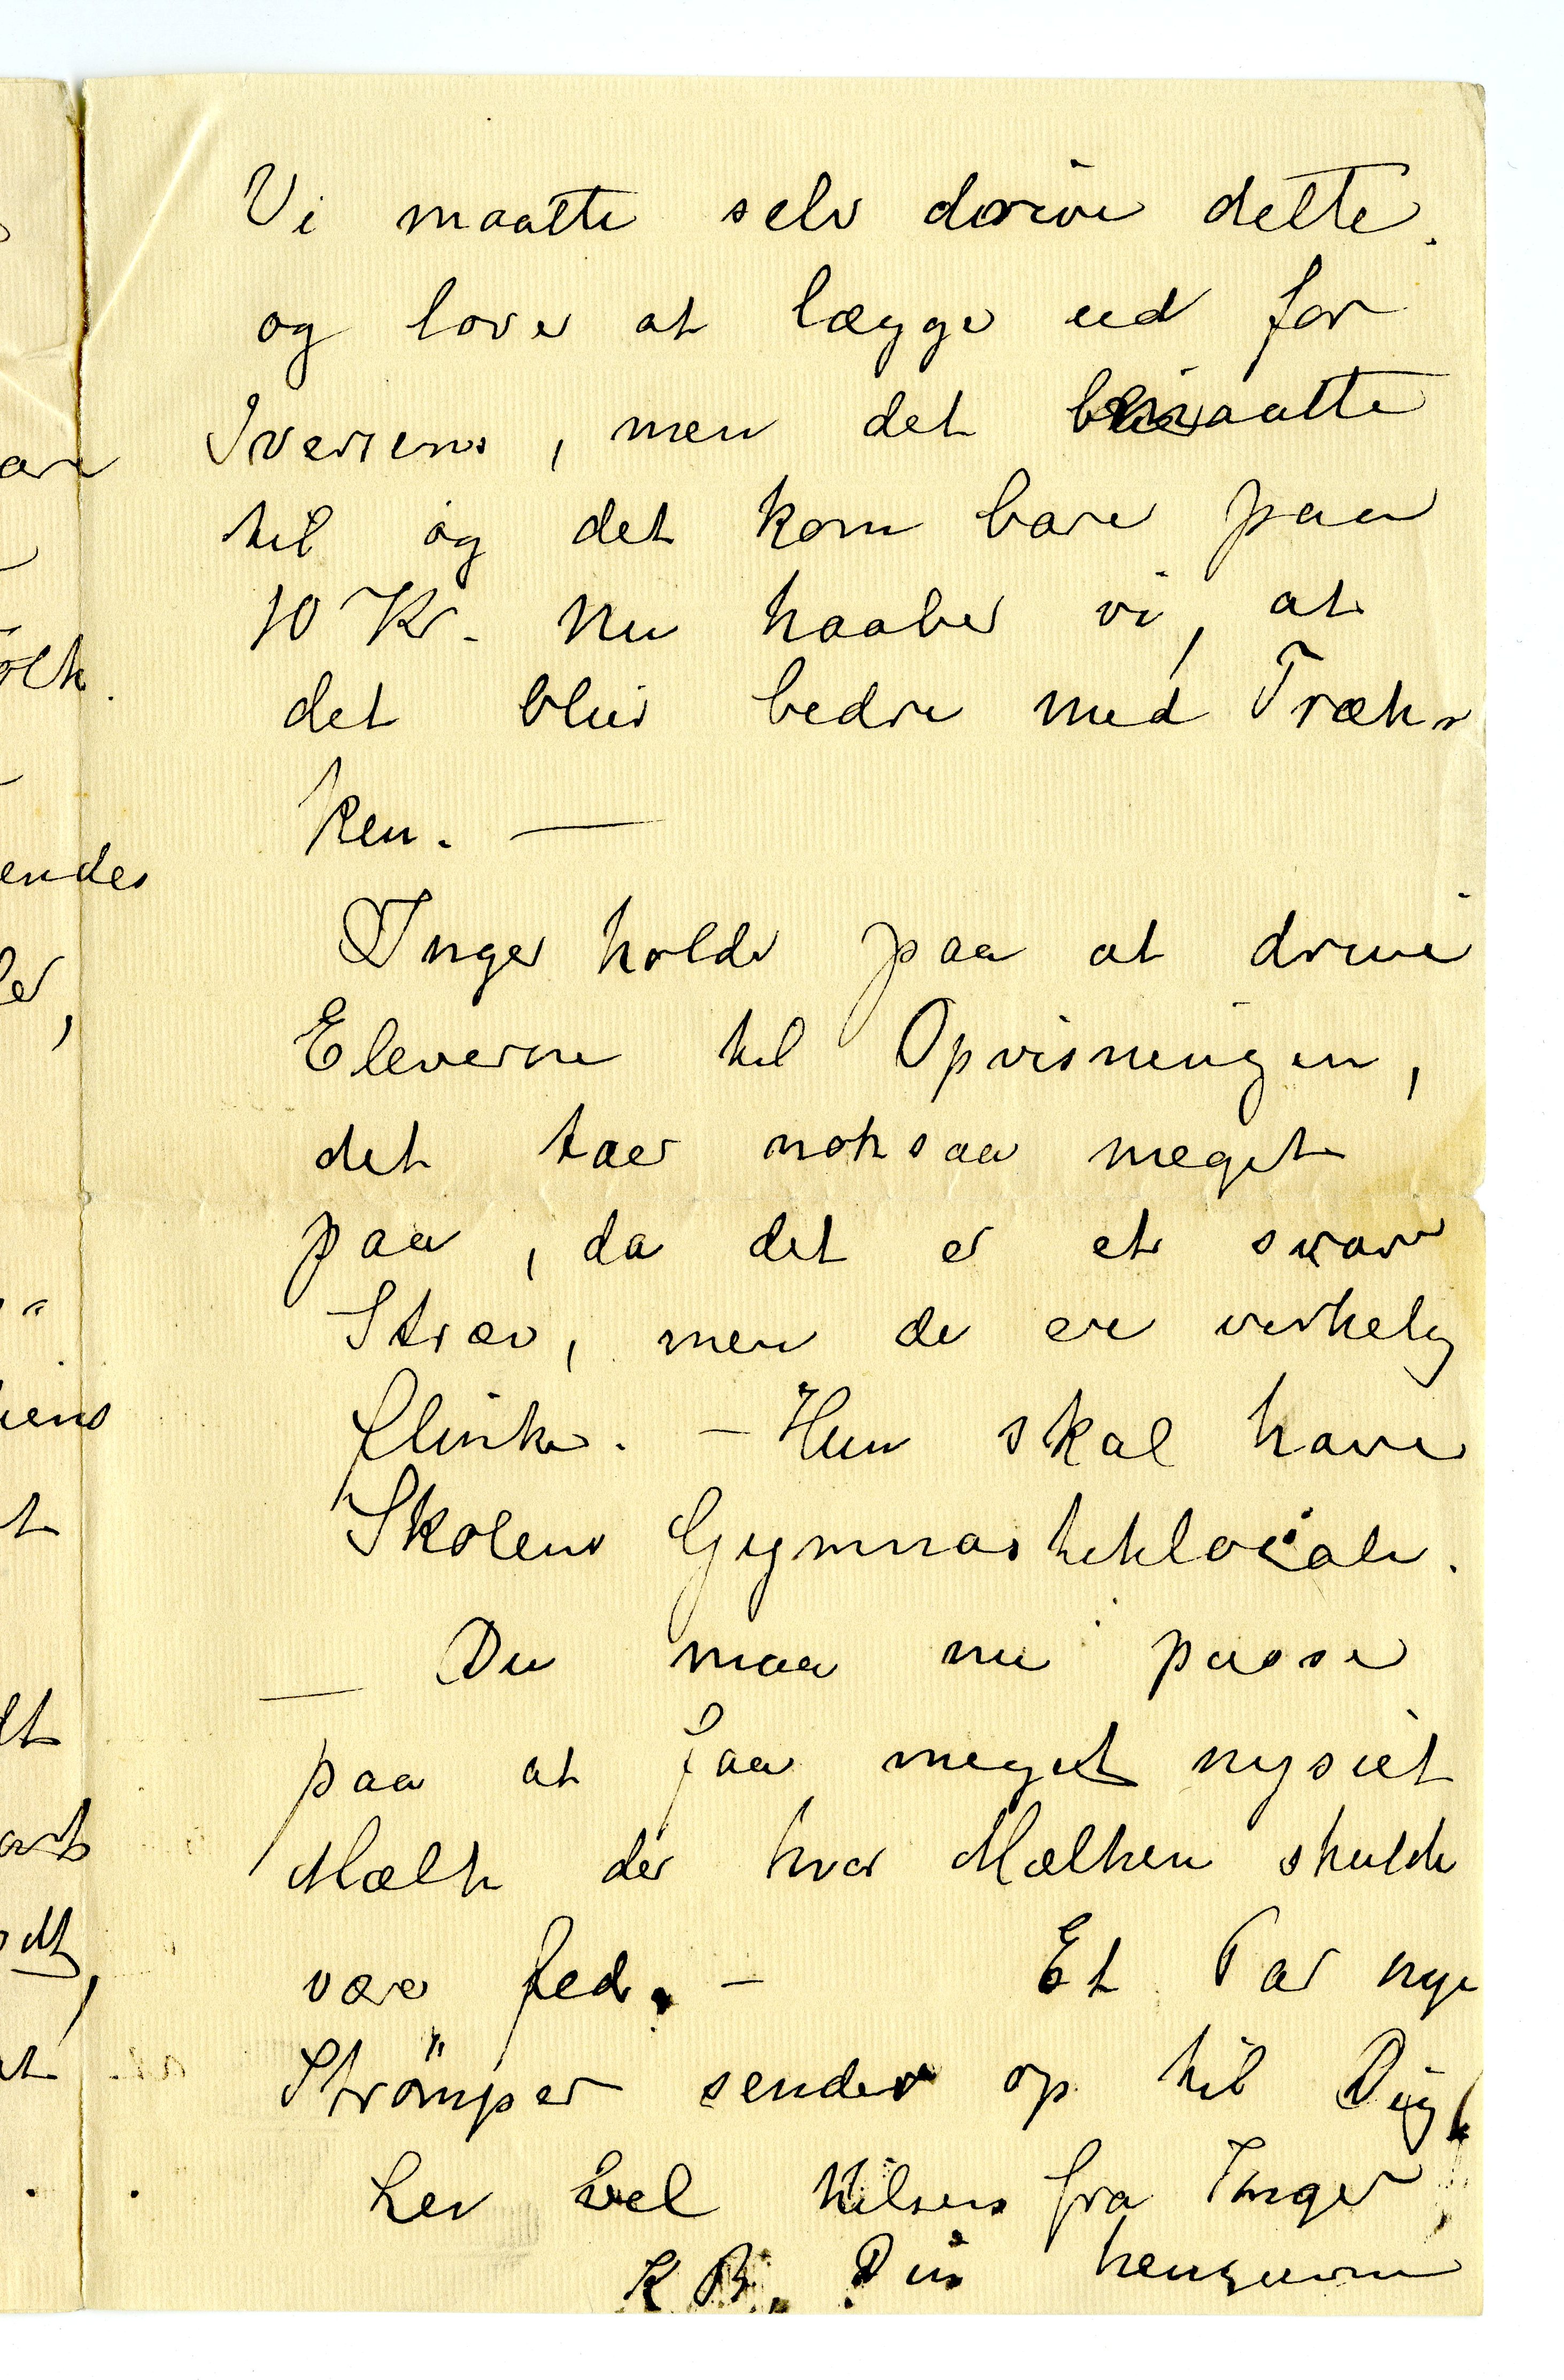 Vi maatte selv drive dette.
og lover at lægge ud for
Iversens, men det maatte
til og det kom bare paa
10 Kr. Nu haaber vi, at
det blir bedre med Træk
ken. —
Inger holder paa at drive
Eleverne til Opvisningen,
det taer noksaa meget
paa, da det er et svare
Stræv, men de ere virkelig
flinke. — Hun skal have
Skolens Gymnastiklocale.
— Du maa nu passe
paa at faa meget nysiet
Mælk der hvor Mælken skulde
være fed. — Et Par nye
Strömper sender op til Dig
Lev vel Hilsen fra Inger
K B. Din hengivne
are
olk.
endes
er,
iens
t
dt
art
odt,
at